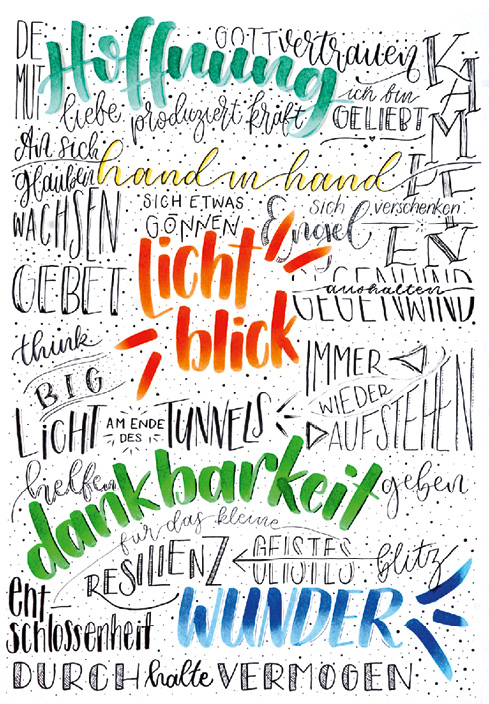 DE
MUT
Hoffnung
GOTTvertrauen
KÄMPFEN
liebe produziert kraft
ich bin
GELIEBT
An sich
glauben
hand in hand
WACHSEN
SICH ETWAS
GÖNNEN
Engel
sich verschenken
GEBET
licht
blick
GEGENWIND
aushalten
think
BIG
IMMER
WIEDER
AUFSTEHEN
LICHT AM ENDE DES TUNNELS
helfen
dankbarkeit
geben
für das kleine
RESILIENZ
GEISTES
blitz
ent-
schlossenheit
WUNDER
DURCHhalteVERMÖGEN